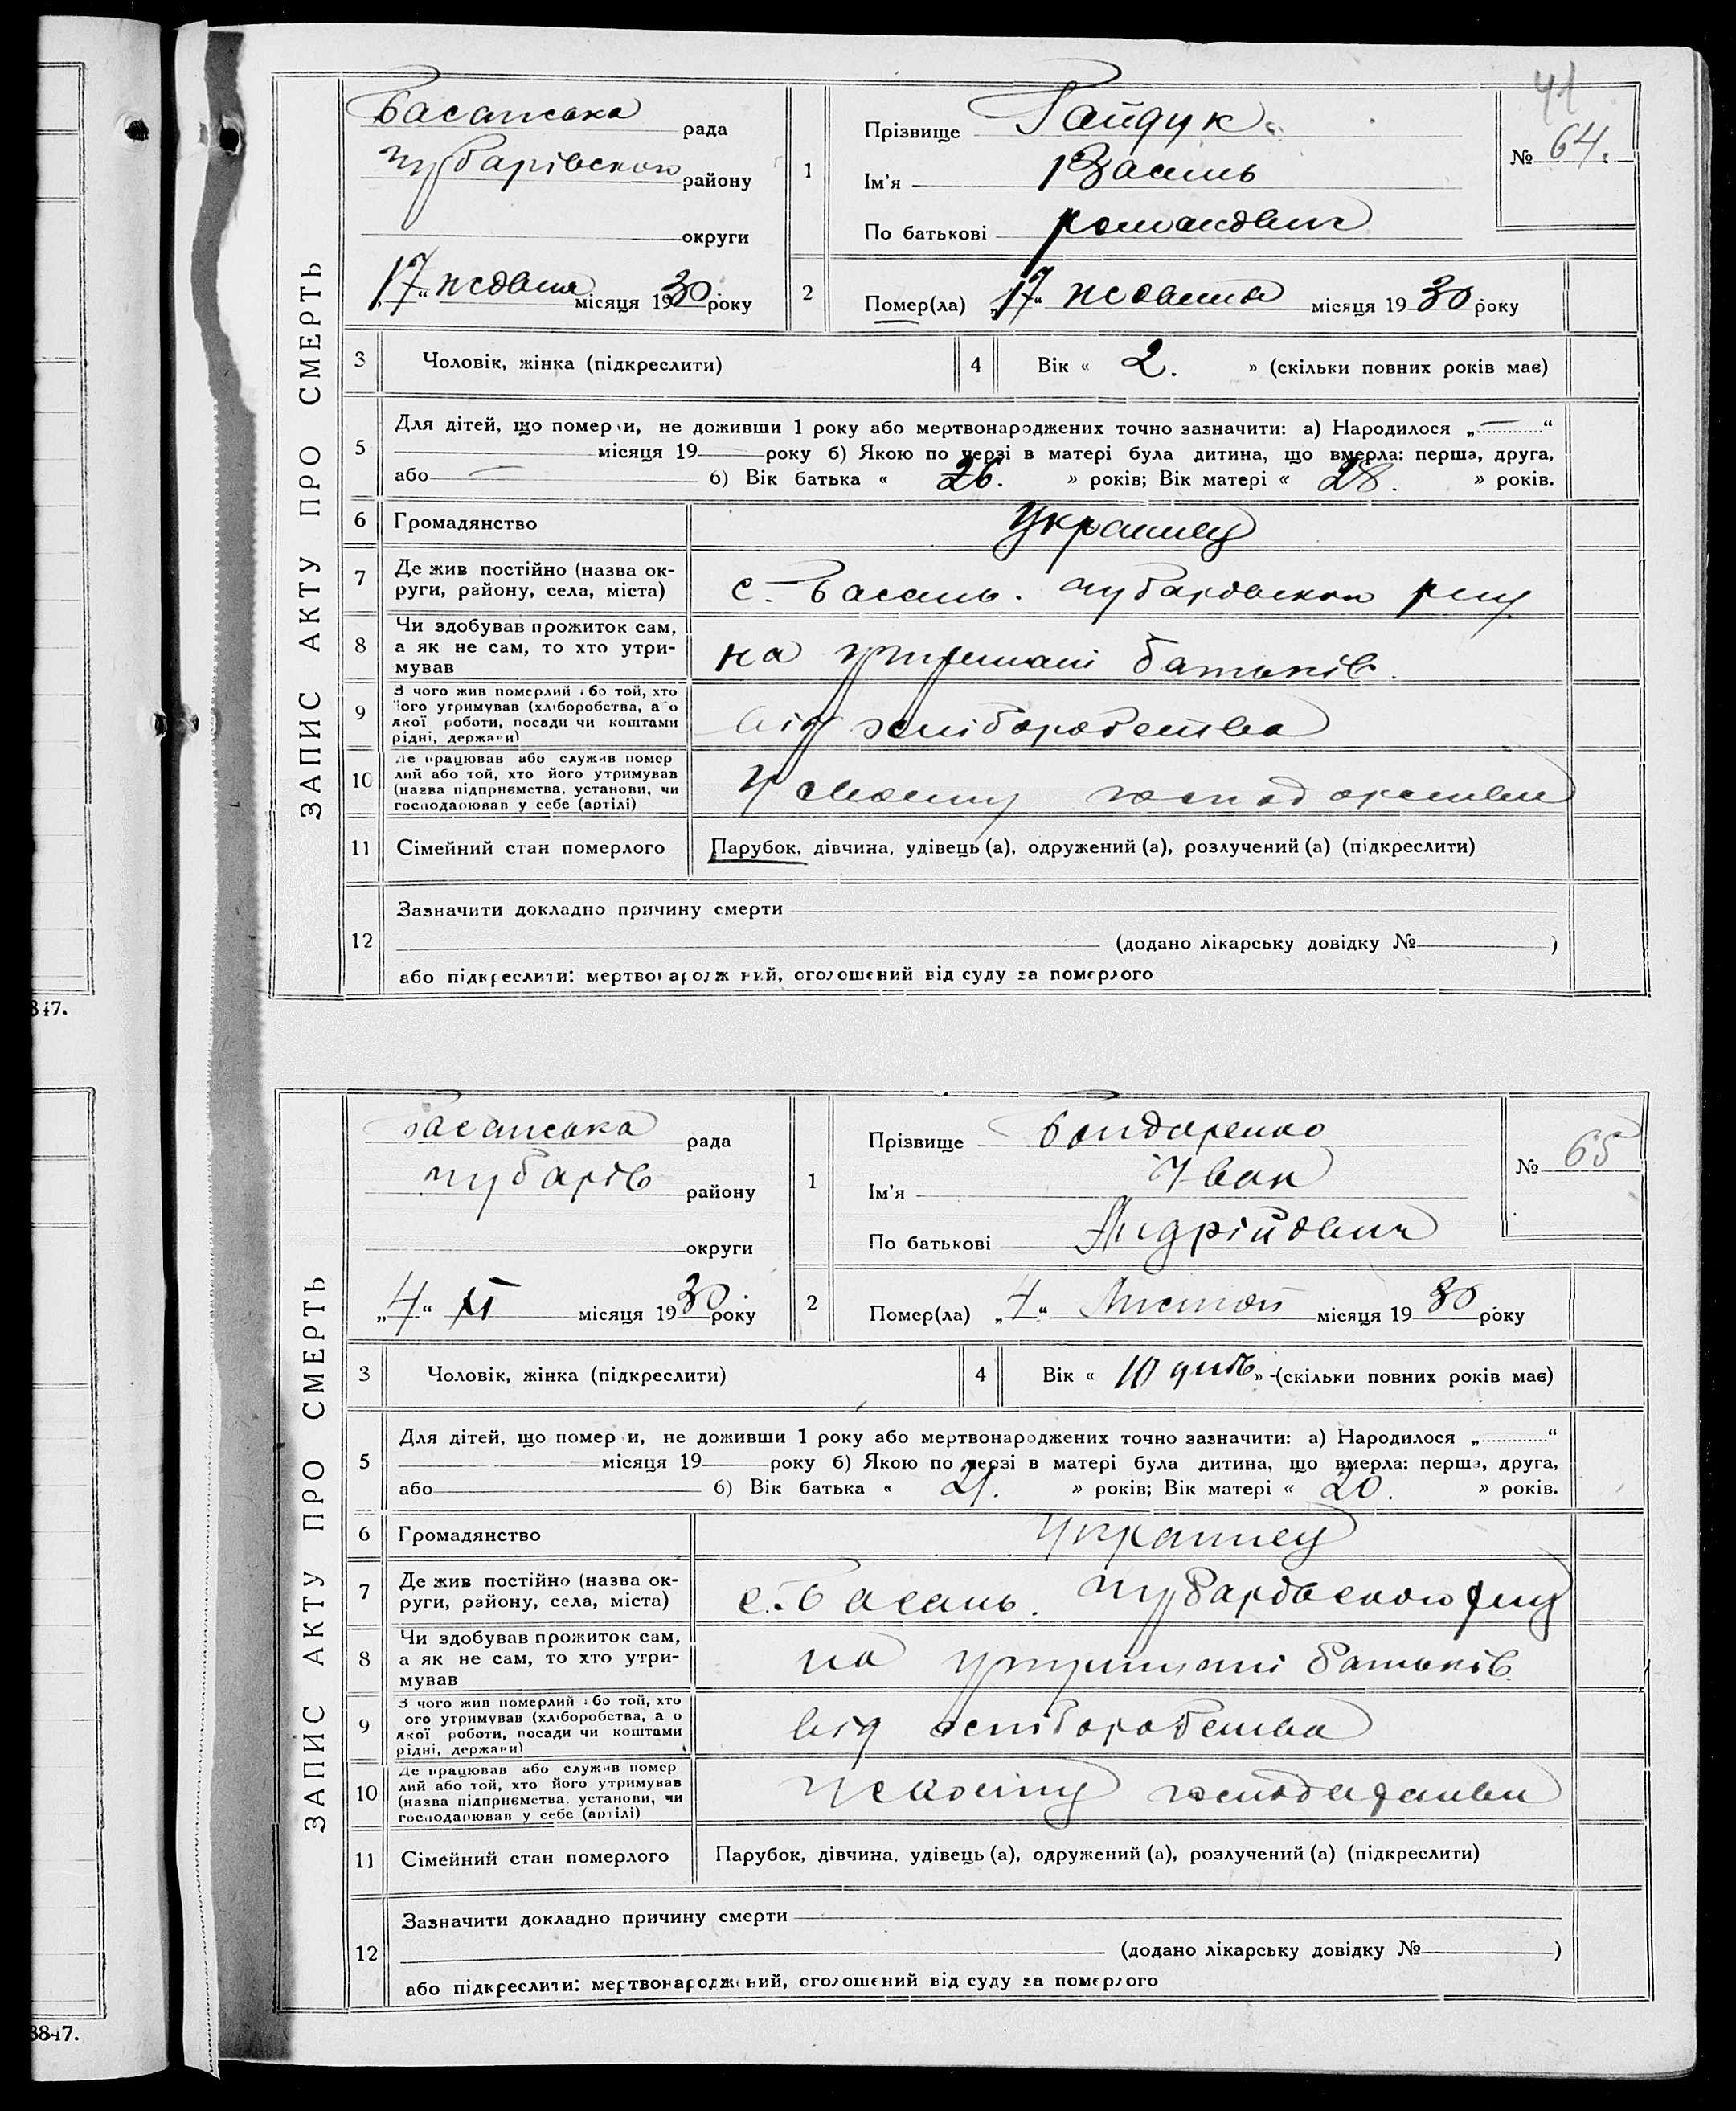 41
Басанська рада
Чубарівського району
округи
„17“ жовтня місяця 1930 року
1
Прізвище Гайдук
Ім'я Василь
По батькові Романович
№ 64.
2
Помер(ла) „17“ жовтня місяця 1930 року
ЗАПИС АКТУ ПРО СМЕРТЬ
3 Чоловік, жінка (підкреслити)
4 Вік « 2. » (скільки повних років має)
5 Для дітей, що помер и, не доживши 1 року або мертвонароджених точно зазначити: а) Народилося „—“
місяця 19 року б) Якою по черзі в матері була дитина, що вмерла: перша, друга,
або — б) Вік батька « 26. » років; Вік матері « 28. » років.
6 Громадянство Українец
7 Де жив постійно (назва ок-
руги, району, села, міста) с. Басань. Чубарівського рну
8 Чи здобував прожиток сам,
а як не сам, то хто утри-
мував на утримані батьків.
9 З чого жив померлий або той, хто
його утримував (хліборобства, або
якої роботи, посади чи коштами
рідні, держави) від хліборобства
10 Де працював або служив помер
лий або той, хто його утримував
(назва підприємства, установи, чи
господарював у себе (артілі) У своєму господарстві
11 Сімейний стан померлого Парубок, дівчина, удівець (а), одружений (а), розлучений (а) (підкреслити)
12 Зазначити докладно причину смерти
(додано лікарську довідку № )
або підкреслити: мертвонароджений, оголошений від суду за померлого
847.
Басанська рада
Чубарів району
округи
„4“ XI місяця 1930 року
1
Прізвище Бондаренко
Ім'я Іван
По батькові Андрійович
№ 65
2
Помер(ла) „4“ Листоп місяця 1930 року
ЗАПИС АКТУ ПРО СМЕРТЬ
3 Чоловік, жінка (підкреслити)
4 Вік « 10 днів » (скільки повних років має)
5 Для дітей, що помер и, не доживши 1 року або мертвонароджених точно зазначити: а) Народилося „ “
місяця 19 року б) Якою по черзі в матері була дитина, що вмерла: перша, друга,
або б) Вік батька « 21. » років; Вік матері « 20. » років.
6 Громадянство Українец
7 Де жив постійно (назва ок-
руги, району, села, міста) с. Басань. Чубарівського рну
8 Чи здобував прожиток сам,
а як не сам, то хто утри-
мував на утримані батьків
9 З чого жив померлий або той, хто
ого утримував (хліборобства, а о
якої роботи, посади чи коштами
рідні, держави) від хліборобства
10 Де працював або служив помер
лий або той, хто його утримував
(назва підприємства, установи, чи
господарював у себе (артілі) У своєму господарстві
11 Сімейний стан померлого Парубок, дівчина, удівець (а), одружений (а), розлучений (а) (підкреслити)
12 Зазначити докладно причину смерти
(додано лікарську довідку № )
або підкреслити: мертвонароджений, оголошений від суду за померлого
8847.